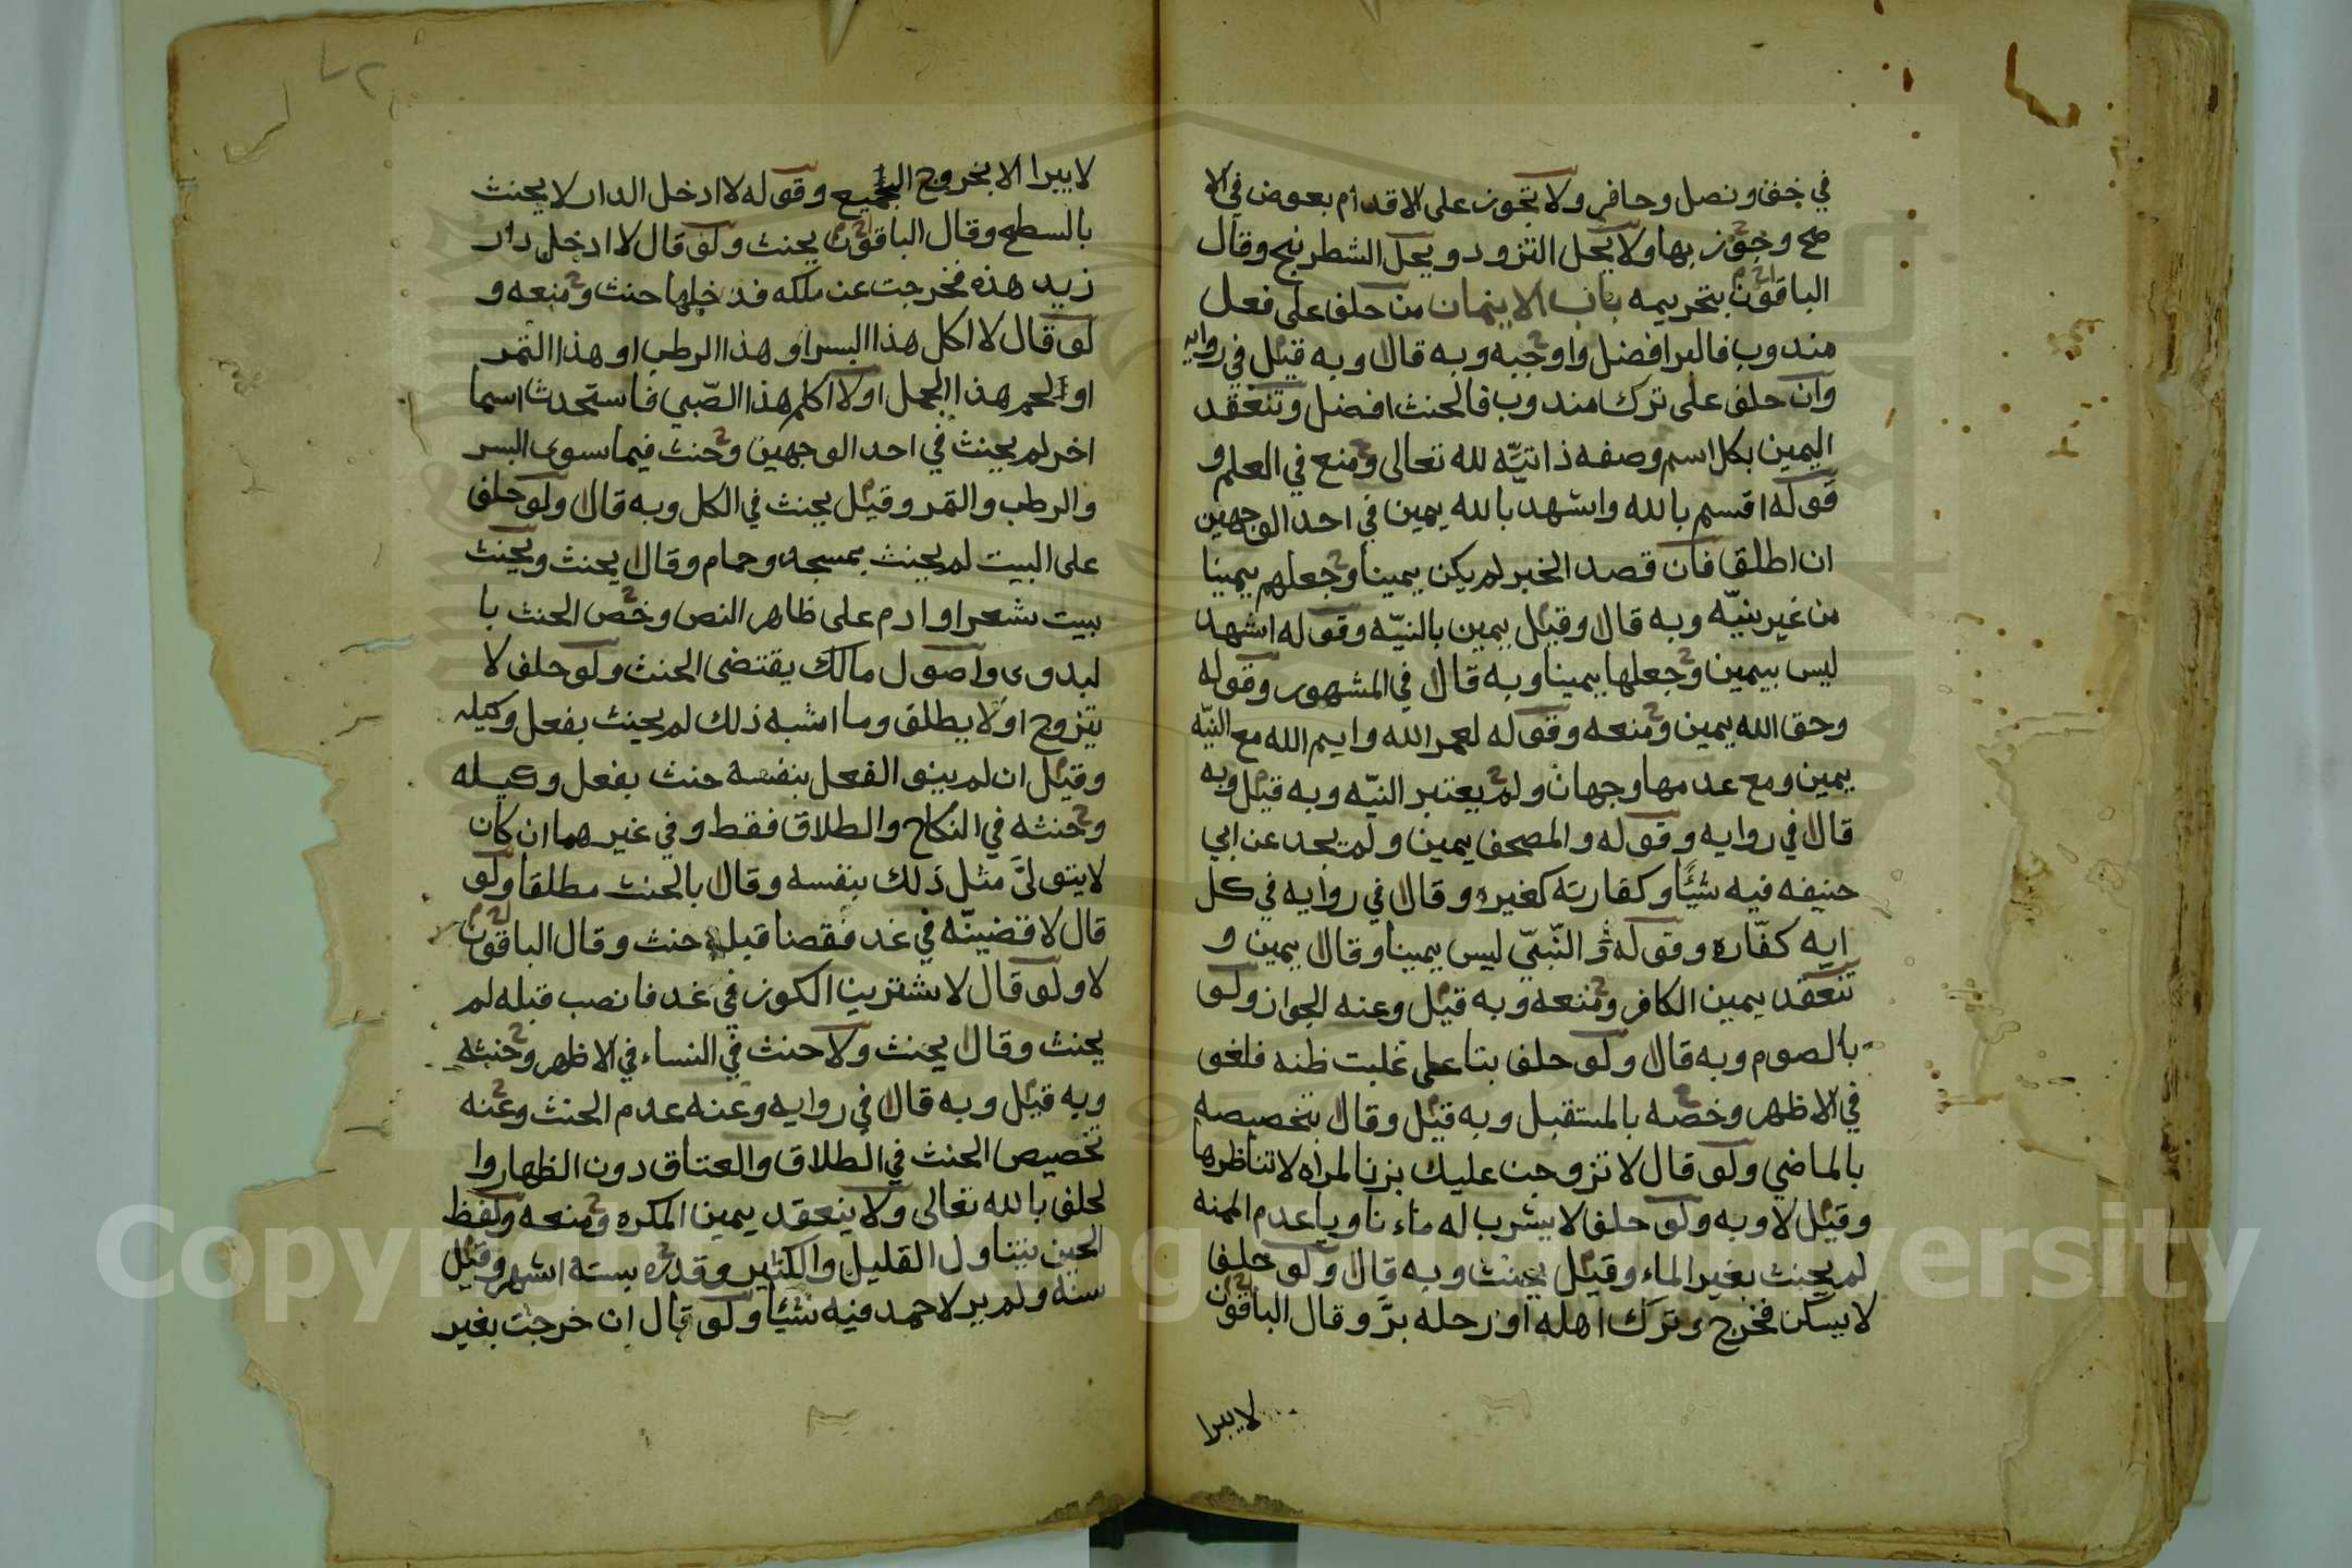 في خف ونصل وحافر ولا تجوز على الاقدام بعوض في الا
صح وجوز بها ولا يحل النزود ويحل الشطرنج وقال
الباقون بتحريمه باب الايمان من حلف على فعل
مندوب فالبر افضل واوجبه وبه قال وبه قيل في روايه
وان حلف على ترك مندوب فالحنث افضل وتنعقد
اليمين بكل اسم وصفه ذاتيّه لله تعالى ومنع في العلم و
قوله اقسم بالله واشهد بالله يمين في احد الوجهين
ان اطلق فان قصد الخبر لم يكن يمينا وجعلهم يمينا
من غير نيّه وبه قال وقيل يمين بالنيّه وقوله اشهد
ليس بيمين وجعلها يمينا وبه قال في المشهور وقوله
وحق الله يمين ومنعه وقوله لعمر الله وايم الله مع النيّه
يمين ومع عدمها وجهان ولم يعتبر النيّه وبه قيل وبه
قال في روايه وقوله والمصحف يمين ولم يجد عن ابي
حنيفه فيه شيًا وكفارته كغيره وقال في روايه في كل
ايه كفّاره وقوله والنّبيّ ليس يمينا وقال يمين و
تنعقد يمين الكافر ومنعه وبه قيل وعنه الجواز ولو
بالصوم وبه قال ولو حلف بتا على غلبت ظنه فلغو
في الاظهر وخصه بالمستقبل وبه قيل وقال بتخصيصه
بالماضي ولو قال لا تزوجت عليك بزنا لمراه لا تناظرها
وقيل لا وبه ولو حلف لا يشرب له ماء ناويا عدم المنه
لم يحنث بغير الماء وقيل يحنث وبه قال ولو حلف
لا يسكن فخرج وترك اهله او رحله برّ وقال الباقون
لا يبرا
لا يبرا الا بخروج الجميع وقوله لا ادخل الدار لا يحنث
بالسطح وقال الباقون يحنث ولو قال لا ادخل دار
زيد هذه فخرجت عن ملكه فدخلها حنث ومنعه و
لو قال لا اكل هذا البسر او هذا الرطب او هذا التمر
او لحم هذا الجمل او لا اكلم هذا الصّبي فاستحدث اسما
اخر لم يحنث في احد الوجهين وحنث فيما سوى البسر
والرطب والتمر وقيل يحنث في الكل وبه قال ولو حلف
على البيت لم يحنث بمسجد وحمام وقال يحنث ويحنث
ببيت شعر او ادم على ظاهر النص وخص الحنث با
لبدوى واصول مالك يقتضى الحنث ولو حلف لا
يتزوج او لا يطلق وما اشبه ذلك لم يحنث بفعل وكيله
وقيل ان لم ينو الفعل بنفسه حنث بفعل وكيله
وحنثه في النكاح والطلاق فقط وفي غيرهما ان كان
لا يتولىّ مثل ذلك بنفسه وقال بالحنث مطلقا ولو
قال لاقضينّه في غد فقصنا قبله حنث وقال الباقون
لا ولو قال لاشترين الكوز في غد فانصب قبله لم
يحنث وقال يحنث ولا حنث في النساء في الاظهر وحنثه
وبه قيل وبه قال في روايه وعنه عدم الحنث وعنه
تخصيص الحنث في الطلاق والعتاق دون الظهار وا
لحلف بالله تعالى ولا ينعقد يمين المكره ومنعه ولفظ
الحين يتناول القليل والكثير وقدره بسته اشهر وقيل
سنه ولم ير لاحمد فيه شيًا ولو قال ان خرجت بغير